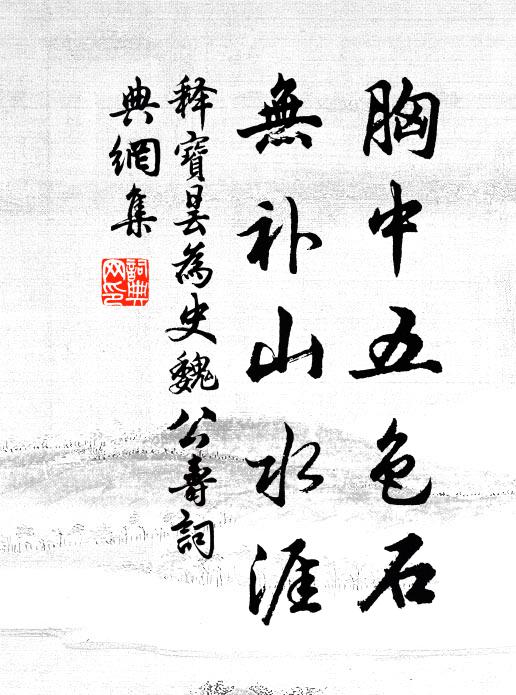 胸中五色石
無补山水涯
释寶曇為史魏公壽詞
典網集
詞典
网印